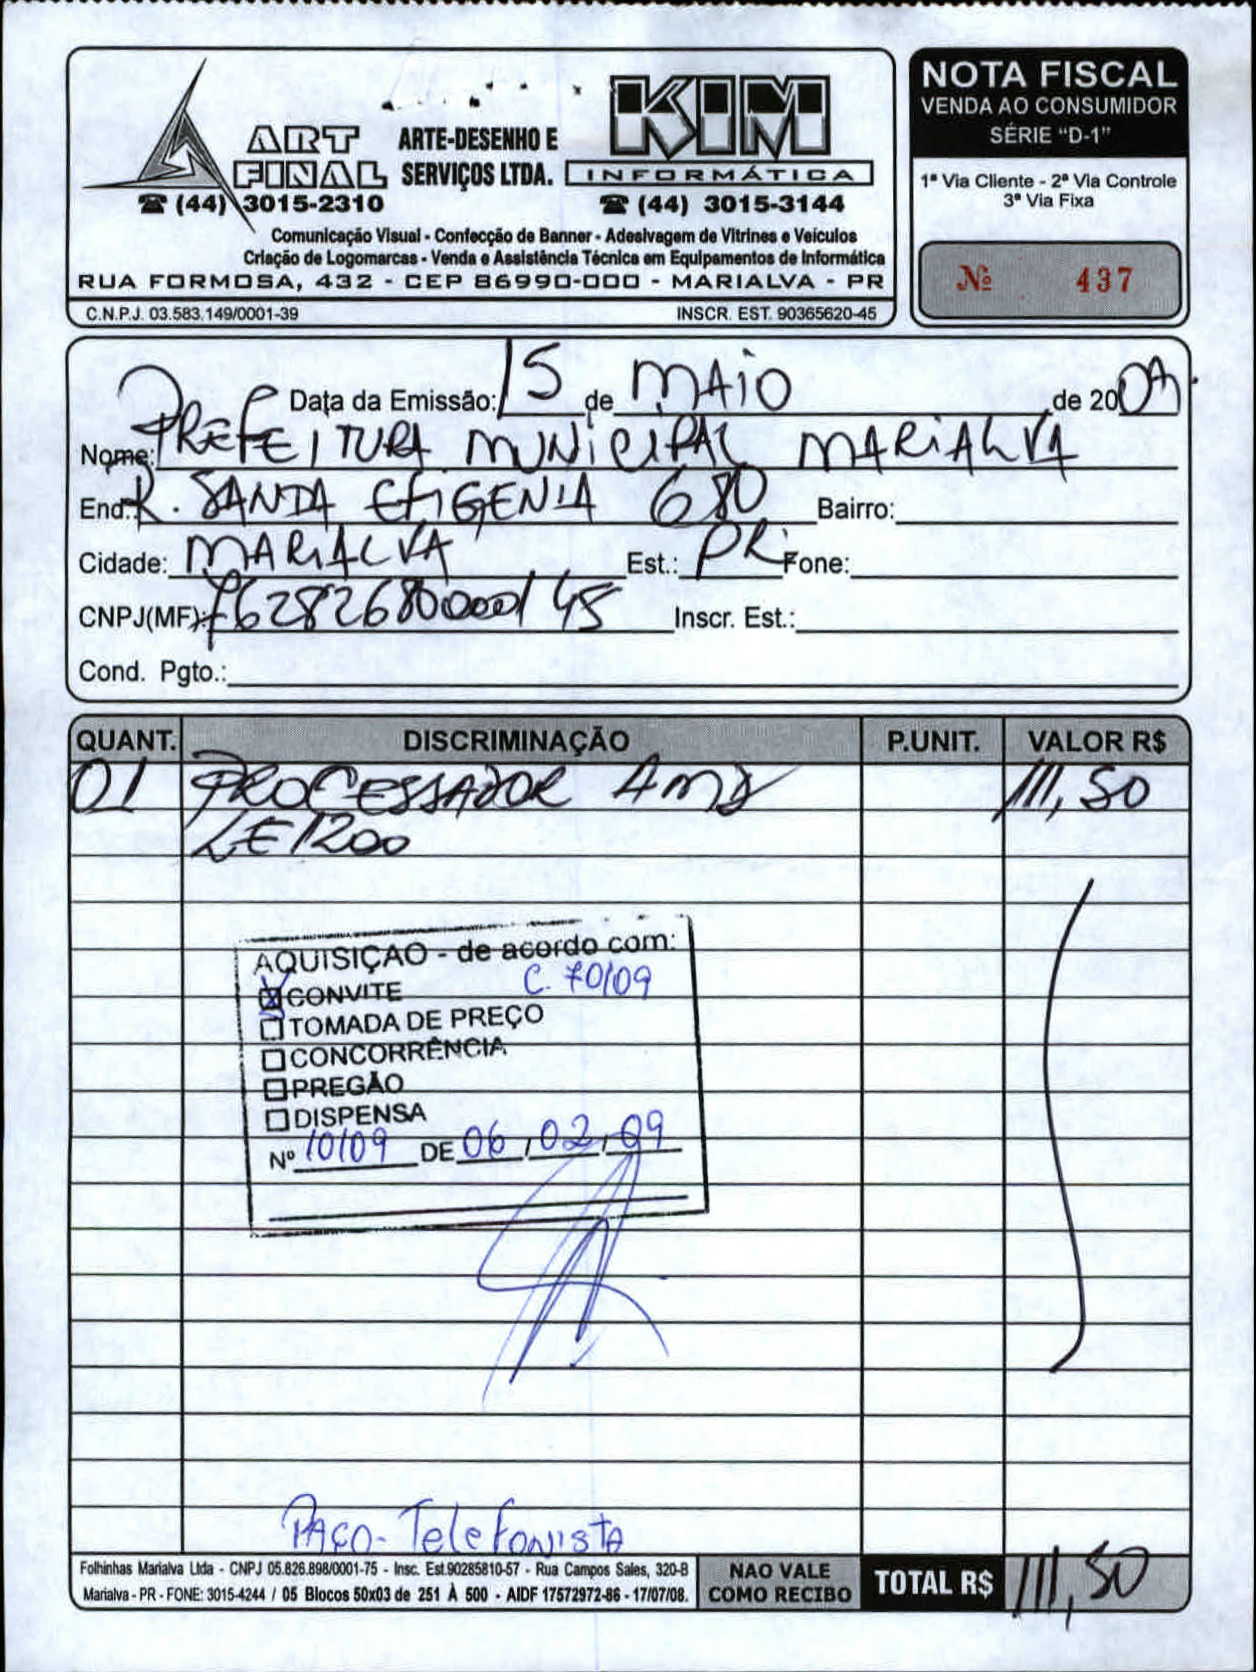 ART FINAL
ARTE-DESENHO E SERVIÇOS LTDA.
KIM INFORMÁTICA
☎ (44) 3015-2310
☎ (44) 3015-3144
Comunicação Visual - Confecção de Banner - Adesivagem de Vitrines e Veículos
Criação de Logomarcas - Venda e Assistência Técnica em Equipamentos de Informática
RUA FORMOSA, 432 - CEP 86990-000 - MARIALVA - PR
C.N.P.J. 03.583.149/0001-39 INSCR. EST. 90365620-45
NOTA FISCAL
VENDA AO CONSUMIDOR
SÉRIE "D-1"
1ª Via Cliente - 2ª Via Controle
3ª Via Fixa
Nº 437
Data da Emissão: 15 de MAIO de 2009
Nome: PREFEITURA MUNICIPAL MARIALVA
End. R. SANDA EFIGENIA 680 Bairro:
Cidade: MARIALVA Est.: PR Fone:
CNPJ(MF): 76282680000145 Inscr. Est.:
Cond. Pgto.:
QUANT. DISCRIMINAÇÃO P.UNIT. VALOR R$
01 PROCESSADOR AMD 111,50
LE1200
AQUISIÇAO - de acordo com:
CONVITE C. 70/09
TOMADA DE PREÇO
CONCORRÊNCIA
PREGÃO
DISPENSA
Nº 10/09 DE 06/02/09
PAÇO - Telefonista
Folhinhas Marialva Ltda - CNPJ 05.826.898/0001-75 - Insc. Est.90285810-57 - Rua Campos Sales, 320-B
Marialva - PR - FONE: 3015-4244 / 05 Blocos 50x03 de 251 À 500 - AIDF 17572972-86 - 17/07/08.
NAO VALE
COMO RECIBO
TOTAL R$ 111,50